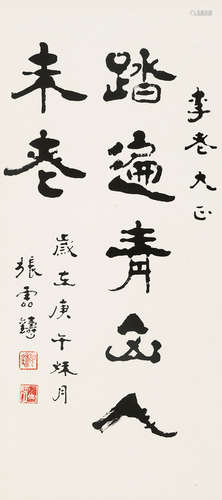 李老大正
踏遍青山人
未老
歲在庚午秋月
張雲鑄